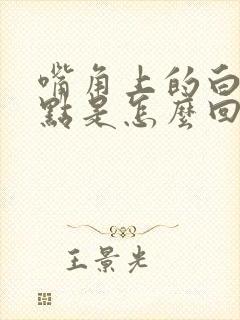 嘴角上的白
點是怎麼回
王景光